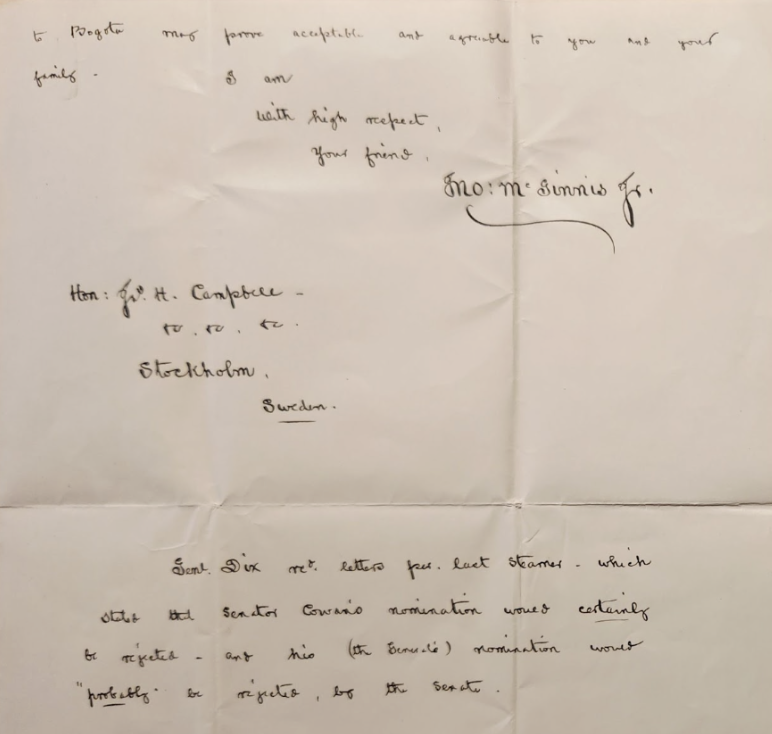 to Bogota may prove acceptable and agreeable to you and your
family - I am
with high respect,
your friend,
Jno: Mc Ginnis Jr.
Hon: Jas. H. Campbell -
&c. &c. &c.
Stockholm,
Sweden.
Genl. Dix recd. letters per. last steamer - which
stated that Senator Cowan's nomination would certainly
be rejected - and his (the General's) nomination would
"probably" be rejected, by the Senate.